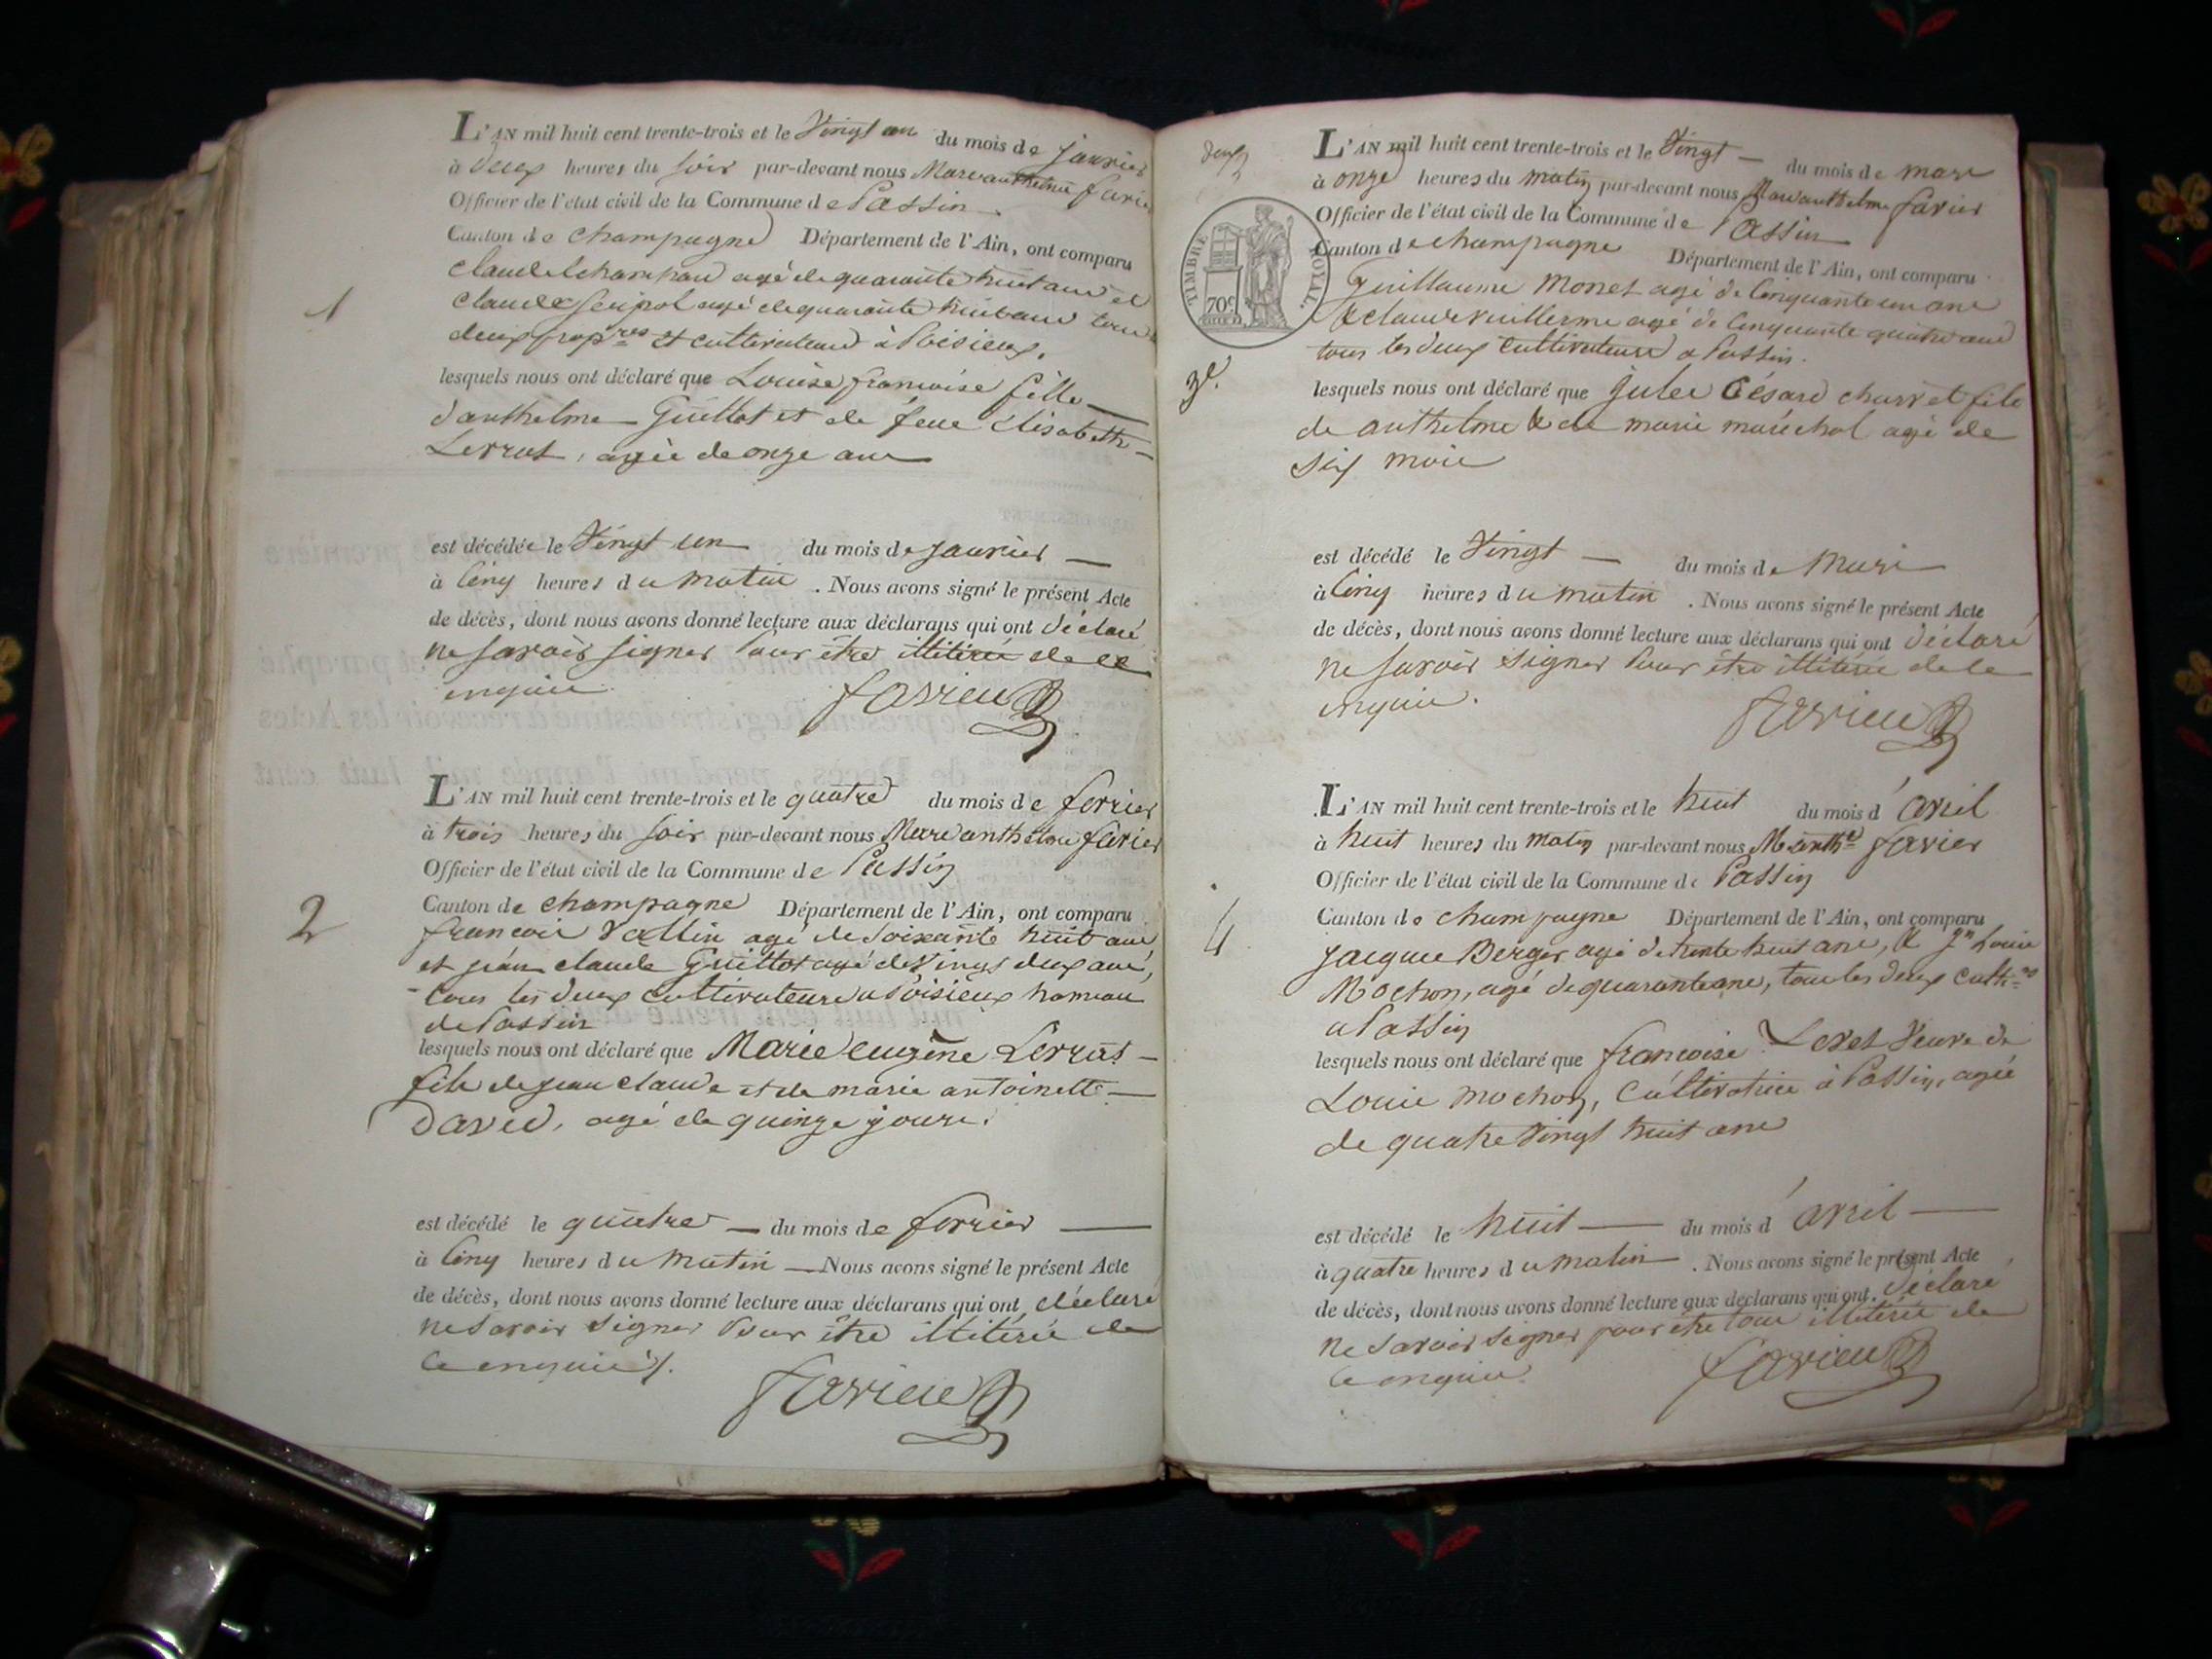 L'AN mil huit cent trente-trois et le Vingt un du mois de janvier
à deux heures du soir par-devant nous Marc anthelme favier
Officier de l'état civil de la Commune de Passin
Canton de champagne Département de l'Ain, ont comparu
claude agé de quarante huit ans et
1
claude agé de quarante huit ans tous
deux propres et cultivateurs à Poisieux.
lesquels nous ont déclaré que Louise françoise fille
d'anthelme Guillot et de feue Elisabeth
Lerrat, agée de onze ans
est décédée le Vingt un du mois de janvier
à Cinq heures du matin. Nous avons signé le présent Acte
de décès, dont nous avons donné lecture aux déclarans qui ont déclaré
ne savoir signer Pour être illitéré de ce
enquis.
favier
L'AN mil huit cent trente-trois et le quatre du mois de fevrier
à trois heures du soir par-devant nous Marc anthelme favier
Officier de l'état civil de la Commune de Passin
2
Canton de champagne Département de l'Ain, ont comparu
francois Vallin agé de Soixante huit ans
et jean claude Guillot agé de Vingt deux ans,
tous les deux cultivateurs a Poisieux hameau
de Passin
lesquels nous ont déclaré que Marie eugène Lerrat
fils de jean claude et de marie antoinette
David, agé de quinze jours.
est décédé le quatre du mois de fevrier
à Cinq heures du matin Nous avons signé le présent Acte
de décès, dont nous avons donné lecture aux déclarans qui ont déclaré
ne savoir signer Pour être illitéré de
ce enquis.
favier
deux
L'AN mil huit cent trente-trois et le Vingt du mois de mars
à onze heures du matin par-devant nous Marc anthelme favier
Officier de l'état civil de la Commune de Passin
TIMBRE ROYAL.
70c.
Canton de champagne Département de l'Ain, ont comparu
Guillaume Monet agé de Cinquante un ans
& claude vuillerme agé de Cinquante quatre ans
tous les deux cultivateurs a Passin.
3e.
lesquels nous ont déclaré que jules César charvet fils
de anthelme & de marie maréchal agé de
six mois
est décédé le Vingt du mois de Mars
à Cinq heures du matin. Nous avons signé le présent Acte
de décès, dont nous avons donné lecture aux déclarans qui ont déclaré
ne savoir signer Pour être illitéré de ce
enquis.
favier
L'AN mil huit cent trente-trois et le huit du mois d'avril
à huit heures du matin par-devant nous M anthe favier
Officier de l'état civil de la Commune de Passin
4
Canton de champagne Département de l'Ain, ont comparu
jacques Berger agé de trente huit ans, & jn Louis
Mochon, agé de quarante ans, tous les deux cult
a Passin
lesquels nous ont déclaré que francoise Veuve de
Louis mochon, Cultivatrice à Passin, agée
de quatre Vingt huit ans
est décédé le huit du mois d'avril
à quatre heures du matin. Nous avons signé le présent Acte
de décès, dont nous avons donné lecture aux déclarans qui ont déclaré
ne savoir signer pour être tous illitéré de
ce enquis.
favier